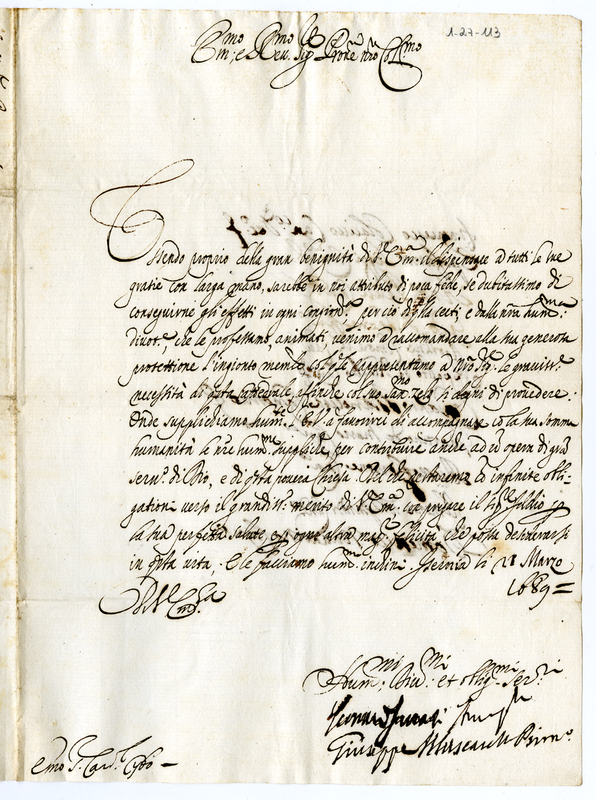 1-27-113
Em.mo e Rev.mo Sig.re P.rone n.ro Col.mo
Essendo proprio della gran benignità di V.ra Em.za il dispensare a tutti le sue
gratie con larga mano, sarebbe in noi attributo di poca fede, se dubitassimo di
conseguirne gli effetti in ogni congion.ra per ciò di q.lla certi, e dalla n.ra hum.ma
divot.e, che le professiamo, animati, venimo a raccomandare alla sua generosa
protettione l'ingionto mem.le col q.le rappresentamo a N.ro Sig.re le graviss.e
necessità di q.sta Catedrale, affinche col suo san.mo zelo si degni di provedere:
Onde supplichiamo hum.te V. Em.za a favorirci di accompagnare co la sua somma
humanità le n.re hum.me suppliche, per contribuire anche ad opera di gra
serv.o di Dio, e di q.sta povera Chiesa. Del che resteremo co infinite obli-
gationi verso il grandiss.o merito di V. Em.za cui preghiamo il
la sua perfetta salute, ogn'altra mag.r felicità che possa desiderarsi
in q.sta vita. E le facciamo hum.mi inchini. Isernia li 28 Marzo
1689=
Di V. Em.za
Hum.mi Div.mi et oblig.mi Ser.ri
Giuseppe
Em.o S. Card. Cybo -